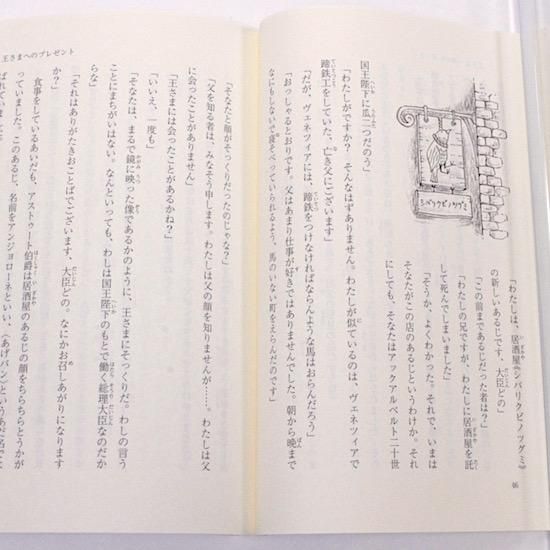 「わたしは、居酒屋《シバリクビノツグミ》
の新しいあるじです、大臣どの」
「この前まであるじだった者は？」
「わたしの兄ですが、わたしに居酒屋を託
して死んでしまいました」
「そうか、よくわかった。それで、いまは
そなたがこの店のあるじというわけか。それ
にしても、そなたはアックアルベルト二十世
シバリクビノツグミ
国王陛下に瓜二つだのう」
「わたしがですか？　そんなはずありません。わたしが似ているのは、ヴェネツィアで
蹄鉄工をしていた、亡き父にございます」
「だが、ヴェネツィアには、蹄鉄をつけなければならんような馬はおらんだろう」
「おっしゃるとおりです。父はあまり仕事が好きではありませんでした。朝から晩まで
なにもしないで寝そべっていられるよう、馬のいない町をえらんだのです」
46
王さまへのプレゼント
「そなたと顔がそっくりだったのじゃな？」
「父を知る者は、みなそう申します。わたしは父の顔を知りませんが……。わたしは父
に会ったことがありません」
「王さまには会ったことがあるかね？」
「いいえ、一度も」
「そなたは、まるで鏡に映った像であるかのように、王さまにそっくりだ。わしの言う
ことにまちがいはない。なんといっても、わしは国王陛下のもとで働く総理大臣なのだか
らな」
「それはありがたきおことばでございます、大臣どの。なにかお召しあがりになります
か？」
食事をしているあいだも、アストゥート伯爵は居酒屋のあるじの顔をちらちらとうかが
っていました。このあるじ、名前をアンジョローネといい、〈あげパン〉というあだ名で